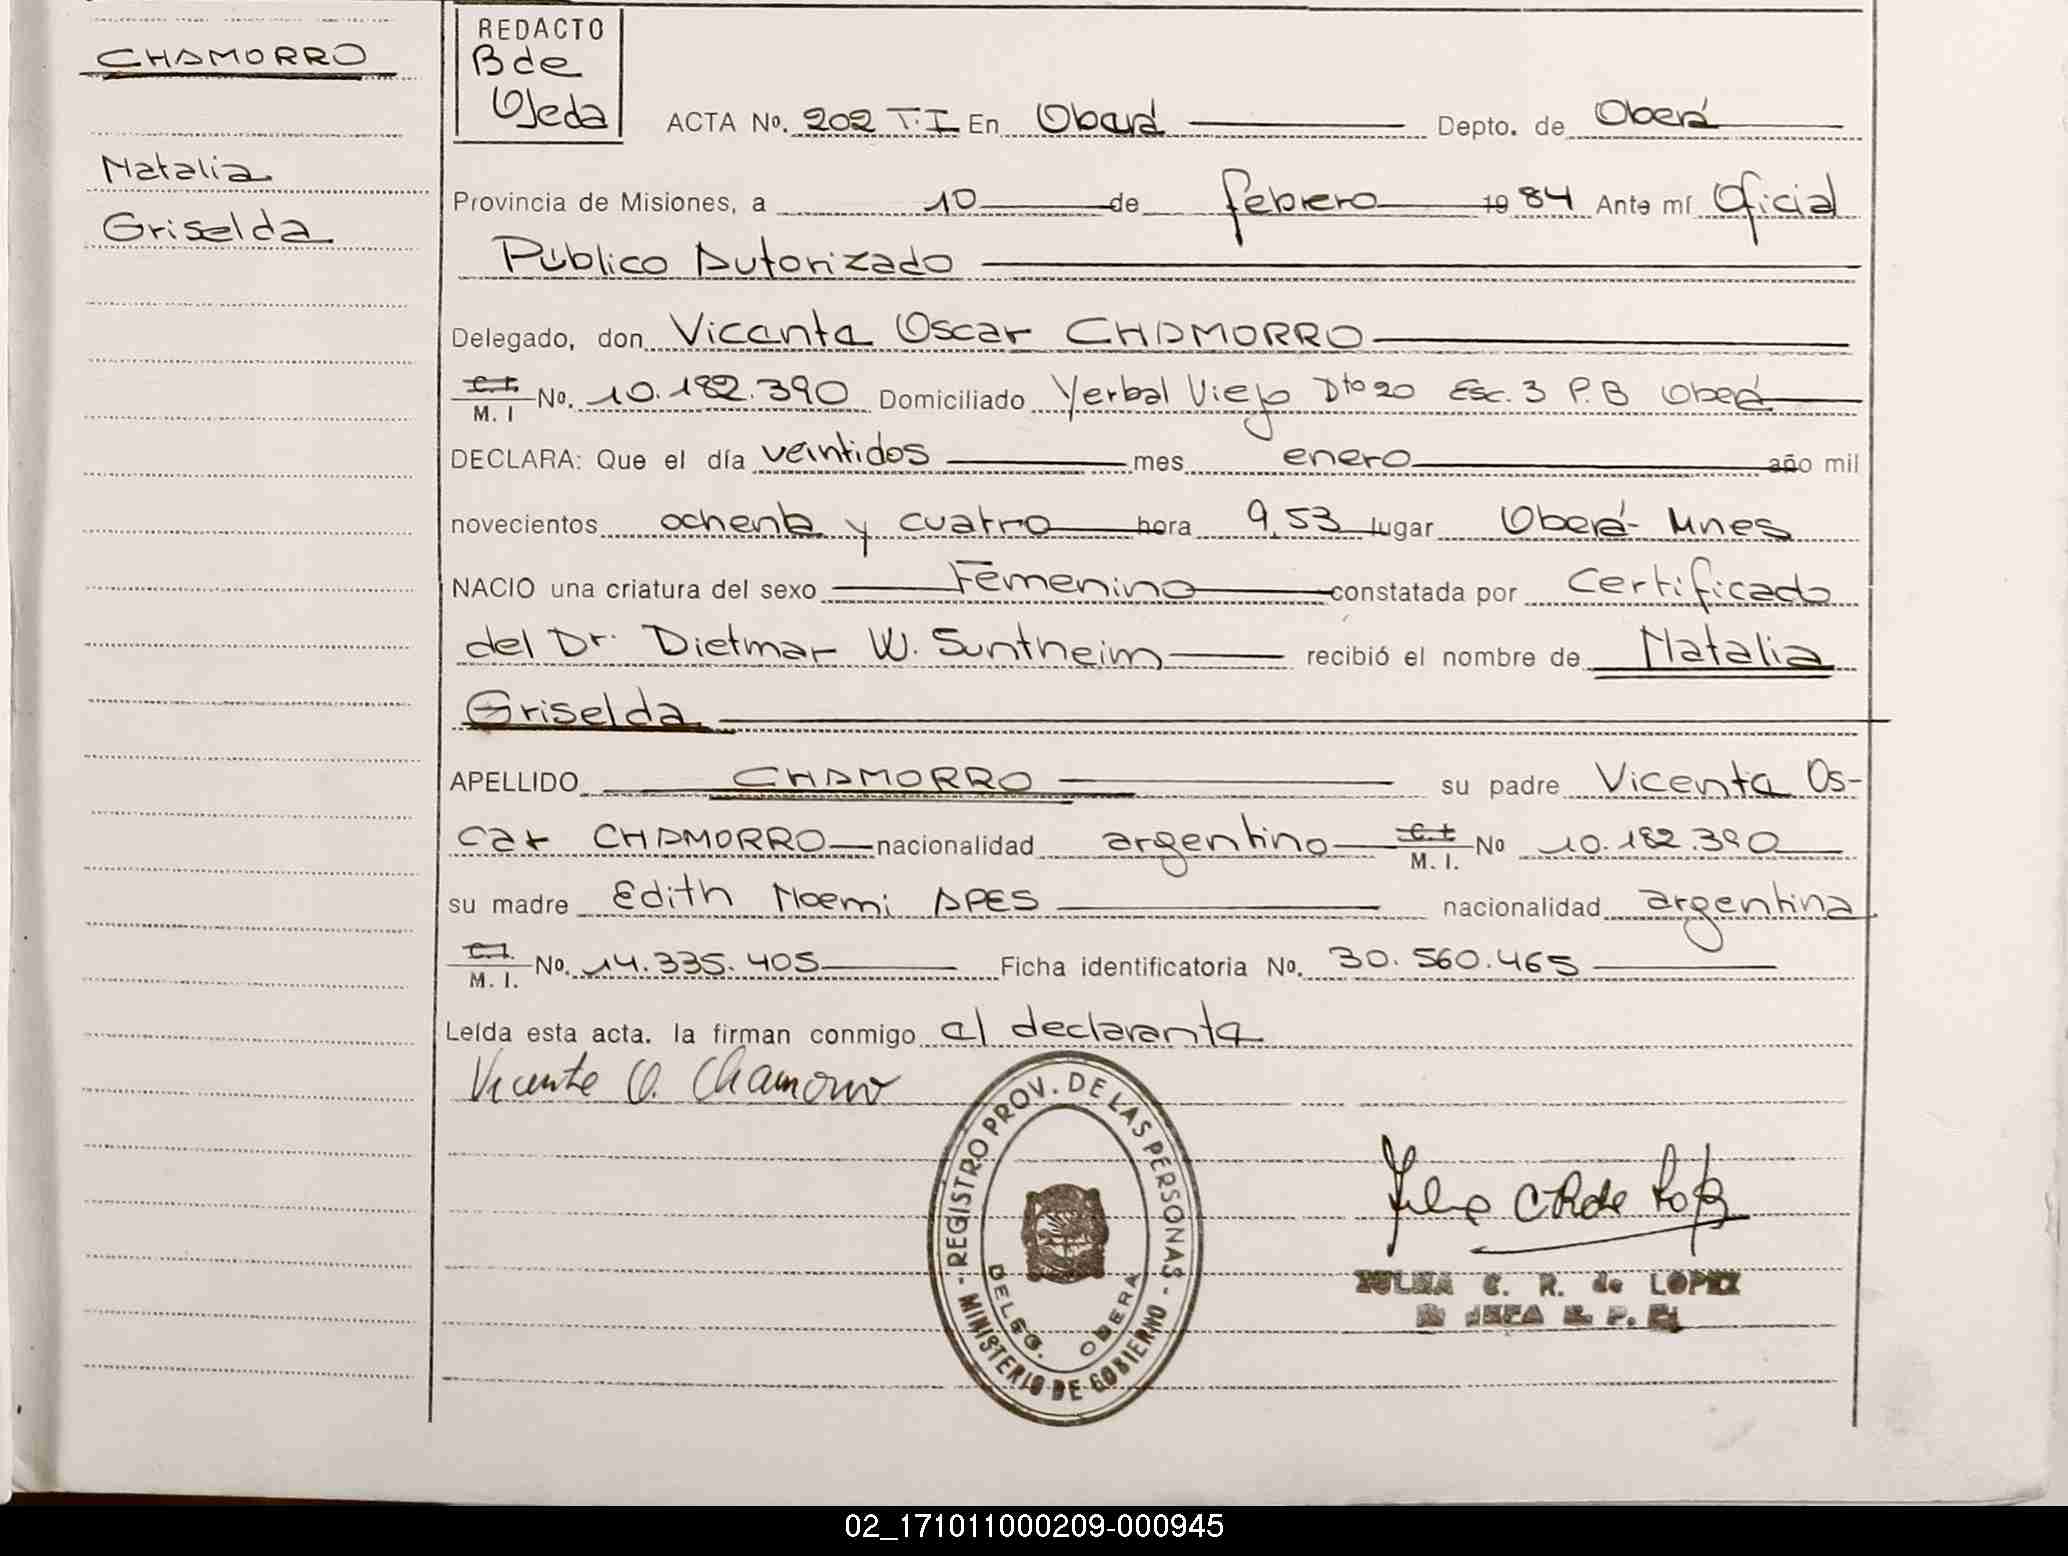 CHAMORRO
Natalia
Griselda
REDACTO
B de
Ojeda
ACTA No. 202 T.I En Oberá Depto. de Oberá
Provincia de Misiones, a 10 de febrero 1984 Ante mí Oficial
Publico Autorizado
Delegado, don Vicente Oscar CHAMORRO
C.I. M. I No. 10.182.390 Domiciliado Yerbal Viejo Dto 20 Esc. 3 P.B Oberá
DECLARA: Que el día veintidos mes enero año mil
novecientos ochenta y cuatro hora 9,53 lugar Oberá- Mnes
NACIO una criatura del sexo Femenino constatada por Certificado
del Dr. Dietmar W. Suntheim recibió el nombre de Natalia
Griselda
APELLIDO CHAMORRO su padre Vicente Os-
car CHAMORRO nacionalidad argentino C.I. M. I. No 10.182.390
su madre Edith Noemi APES nacionalidad argentina
C.I. M. I. No. 14.335.405 Ficha identificatoria No. 30.560.465
Leída esta acta. la firman conmigo el declarante
Vicente O. Chamorro
REGISTRO PROV. DE LAS PERSONAS - MINISTERIO DE GOBIERNO -
DELEG. OBERA
C. R. de LOPEZ
JEFA
02_171011000209-000945